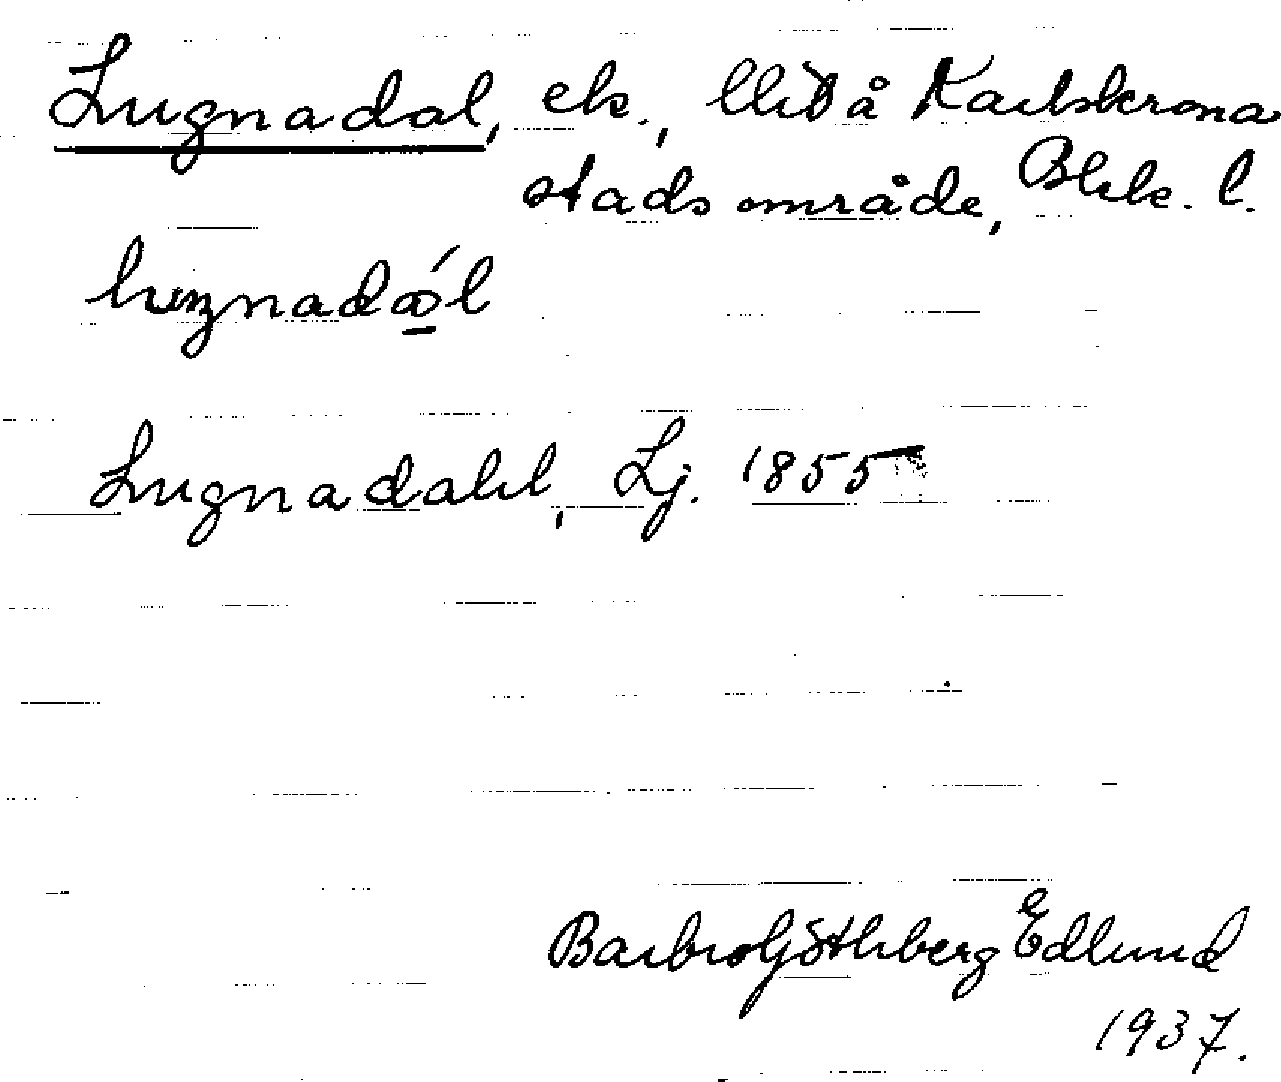 Lugnadal, ek., å Karlskrona
stadsområde, Blek. l.
Lugnadahl, Lj. 1855
Barbro Göthberg Edlund
1937.